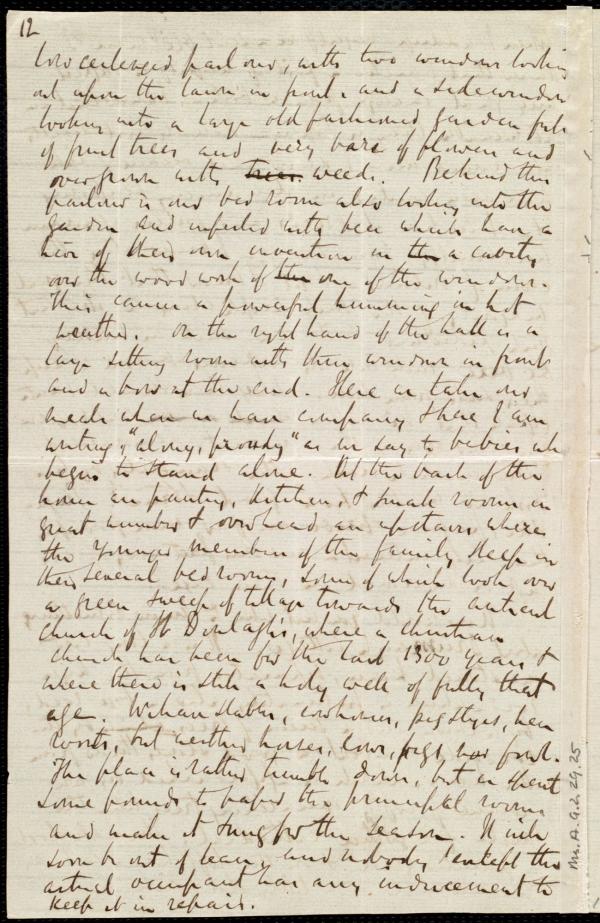 12
low ceilinged parlour, with two windows looking
out upon the lawn in front, and a side window
looking into a large old fashioned garden full
of fruit trees and very bare of flowers and
overgrown with trees weeds. Behind this
parlour is our bed room also looking into the
garden and infested with bees which have a
hive of their own invention in the a cavity
over the wood work of the one of the windows.
This causes a powerful humming in hot
weather. On the right hand of the hall is a
large sitting room with three windows in front
and a bow at the end. Here we take our
meals when we have company & here I am
writing, "alony, proudy" as we say to babies wh
begin to stand alone. At the back of the
house are pantry, kitchen, & small rooms in
great number & overhead an upstairs where
the younger members of the family sleep in
their several bedrooms, some of which look over
a green sweep of tillage towards the antient
church of St Doulagh's, where a christian
church has been for the last 1300 years &
where there is still a holy well of fully that
age. We have stables, cowhouses, pigstyes, hen
roosts, but neither horses, cows, pigs, nor fowl.
The place is rather tumble down, but we spent
some pounds to paper the principal rooms
and make it snug for the season. It will
soon be out of lease, and nobody except the
actual occupant has any inducement to
keep it in repair.
Ms.A.9.2.29.25